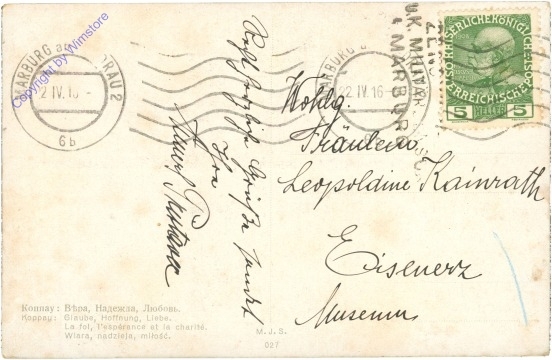 MARBURG a. DRAU 2
22 IV. 16
6 b
Copyright by Wimstore
MARBURG
22 IV. 16
K.U.K. MILITÄR
ZENSUR
MARBURG
1908
KAISERLICHE KÖNIGLICHE
ÖSTERREICHISCHE
5 HELLER 5
Wohlg.
Fräulein
Leopoldine Kainrath
Eisenerz
Museum
Grüße
Коппау: Вѣра, Надежда, Любовь.
Koppay: Glaube, Hoffnung, Liebe.
La foi, l'espérance et la charité.
Wiara, nadzieja, miłość.
M.J.S.
027